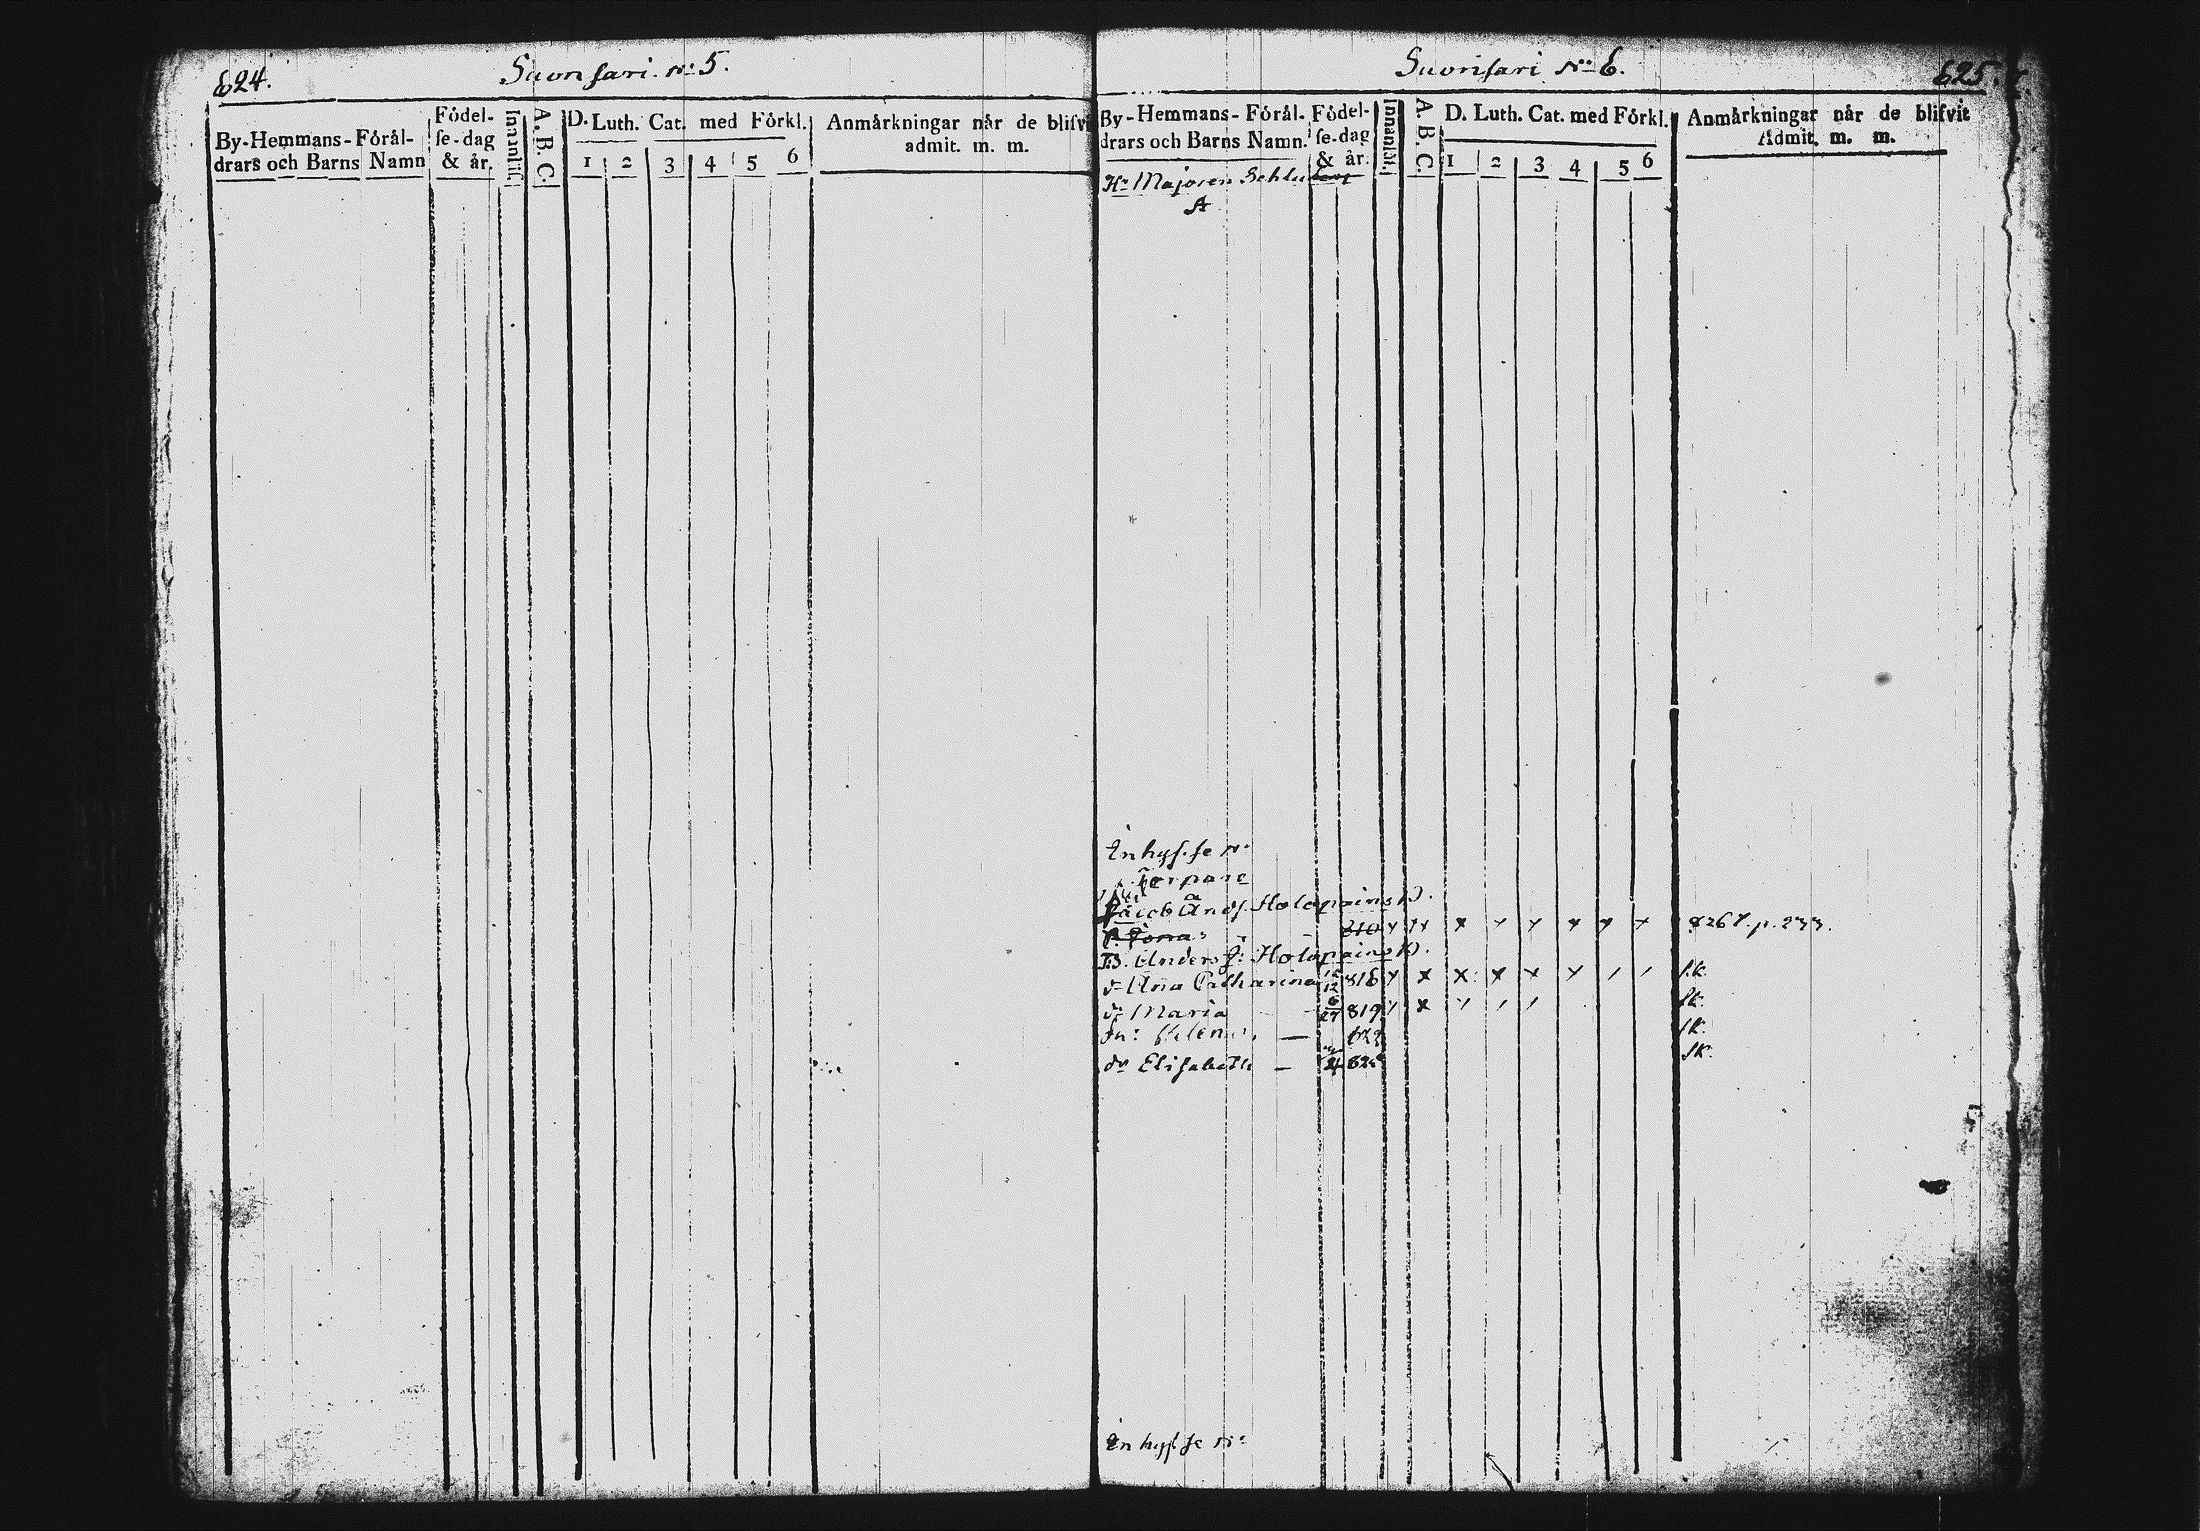 624.
Suonsari. No 5.
By-Hemmans-Förål-
drars och Barns Namn
Födel-
se-dag
& år.
Innanläs.
A. B. C.
D. Luth. Cat. med Förkl.
1 2 3 4 5 6
Anmärkningar når de blifvit
admit. m. m.
Suonsari No 6.
625.
By-Hemmans-Förål-
drars och Barns Namn.
Födel-
se-dag
& år.
Innanläs.
A. B. C.
D. Luth. Cat. med Förkl.
1 2 3 4 5 6
Anmärkningar når de blifvit
Admit. m. m.
Hr Majoren
A
Inhysse No
Torpare
Jacob And. Holopainens D.
Jonas 810 x x x x x x x x x p. 233.
Anders J: Holopainens D.
dr Anna Catharina 816 x x x x x x / / sk.
dr Maria 819 / x / / / sk.
dr: Helena — sk.
dr Elisabeth — sk.
Inhysse No